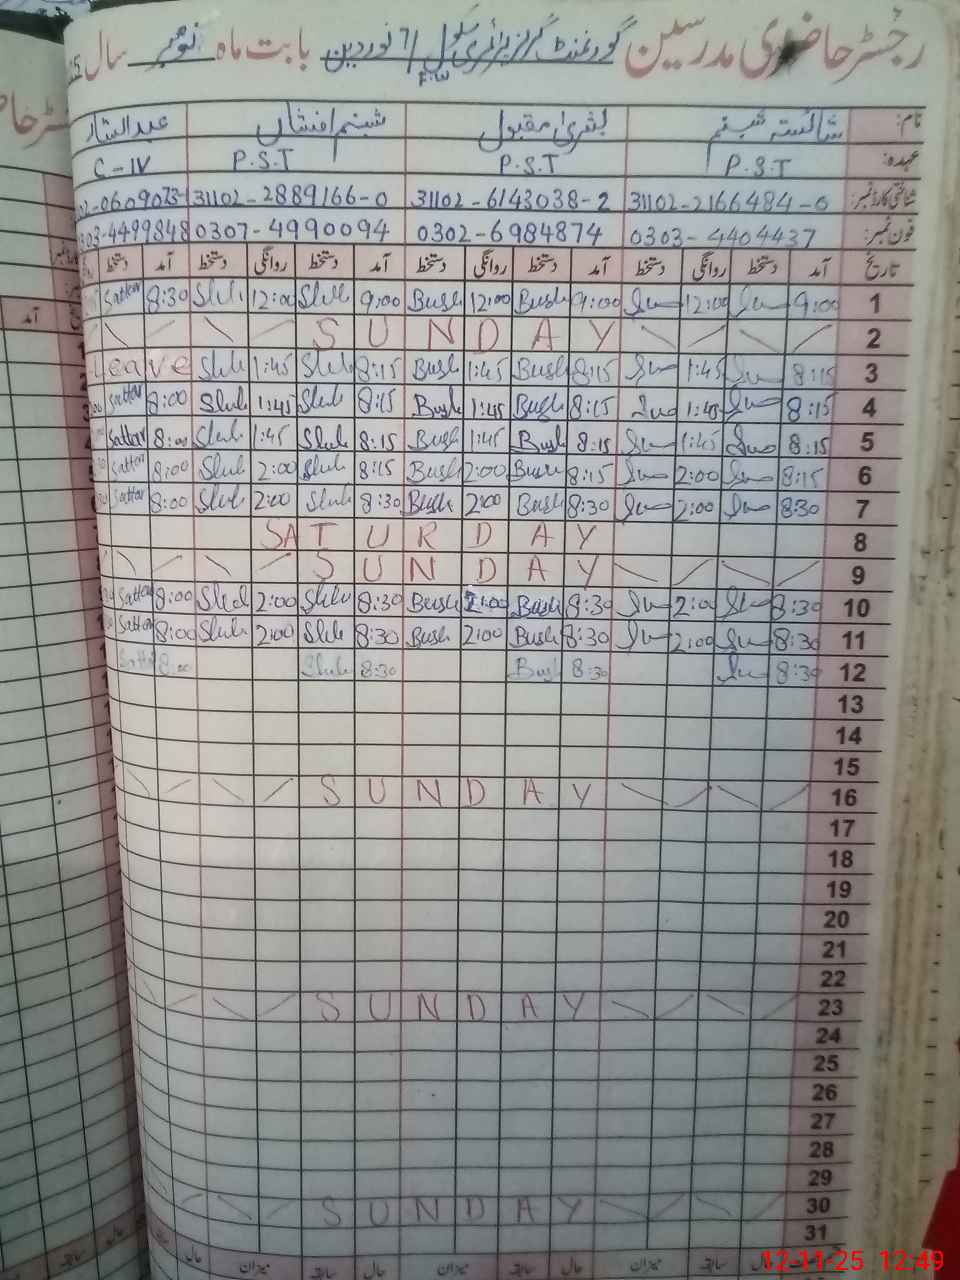 رجسٹر حاضری مدرسین گورنمنٹ گرلز پرائمری سکول 7/ نوردین بابت ماہ نومبر سال
F.W
نام: شائستہ شبنم بشریٰ مقبول شبنم افشاں عبدالستار
عہدہ: P.S.T P.S.T P.S.T C-IV
شناختی کارڈ نمبر: 31102-2166484-0 31102-6143038-2 31102-2889166-0 02-0609073-
فون نمبر: 0303-4404437 0302-6984874 0307-4990094 303-4499848
تاریخ آمد دستخط روانگی دستخط آمد دستخط روانگی دستخط آمد دستخط روانگی دستخط آمد دستخط
1 9:00 12:00 9:00 Bush 12:00 Bush 9:00 Shh 12:00 Shh 8:30 Sattar
2 SUNDAY
3 8:15 1:45 8:15 Bush 1:45 Bush 8:15 Shh 1:45 Shh Leave
4 8:15 1:45 8:15 Bush 1:45 Bush 8:15 Shh 1:45 Shh 8:00 Sattar
5 8:15 1:45 8:15 Bush 1:45 Bush 8:15 Shh 1:45 Shh 8:00 Sattar
6 8:15 2:00 8:15 Bush 2:00 Bush 8:15 Shh 2:00 Shh 8:00 Sattar
7 8:30 2:00 8:30 Bush 2:00 Bush 8:30 Shh 2:00 Shh 8:00 Sattar
8 SATURDAY
9 SUNDAY
10 8:30 2:00 8:30 Bush 2:00 Bush 8:30 Shh 2:00 Shh 8:00 Sattar
11 8:30 2:00 8:30 Bush 2:00 Bush 8:30 Shh 2:00 Shh 8:00 Sattar
12 8:30 8:30 Bush 8:30 Shh 8:00 Sattar
13
14
15
16 SUNDAY
17
18
19
20
21
22
23 SUNDAY
24
25
26
27
28
29
30 SUNDAY
31
حال سابقہ میزان حال سابقہ میزان حال سابقہ میزان حال سابقہ
12-11-25 12:49